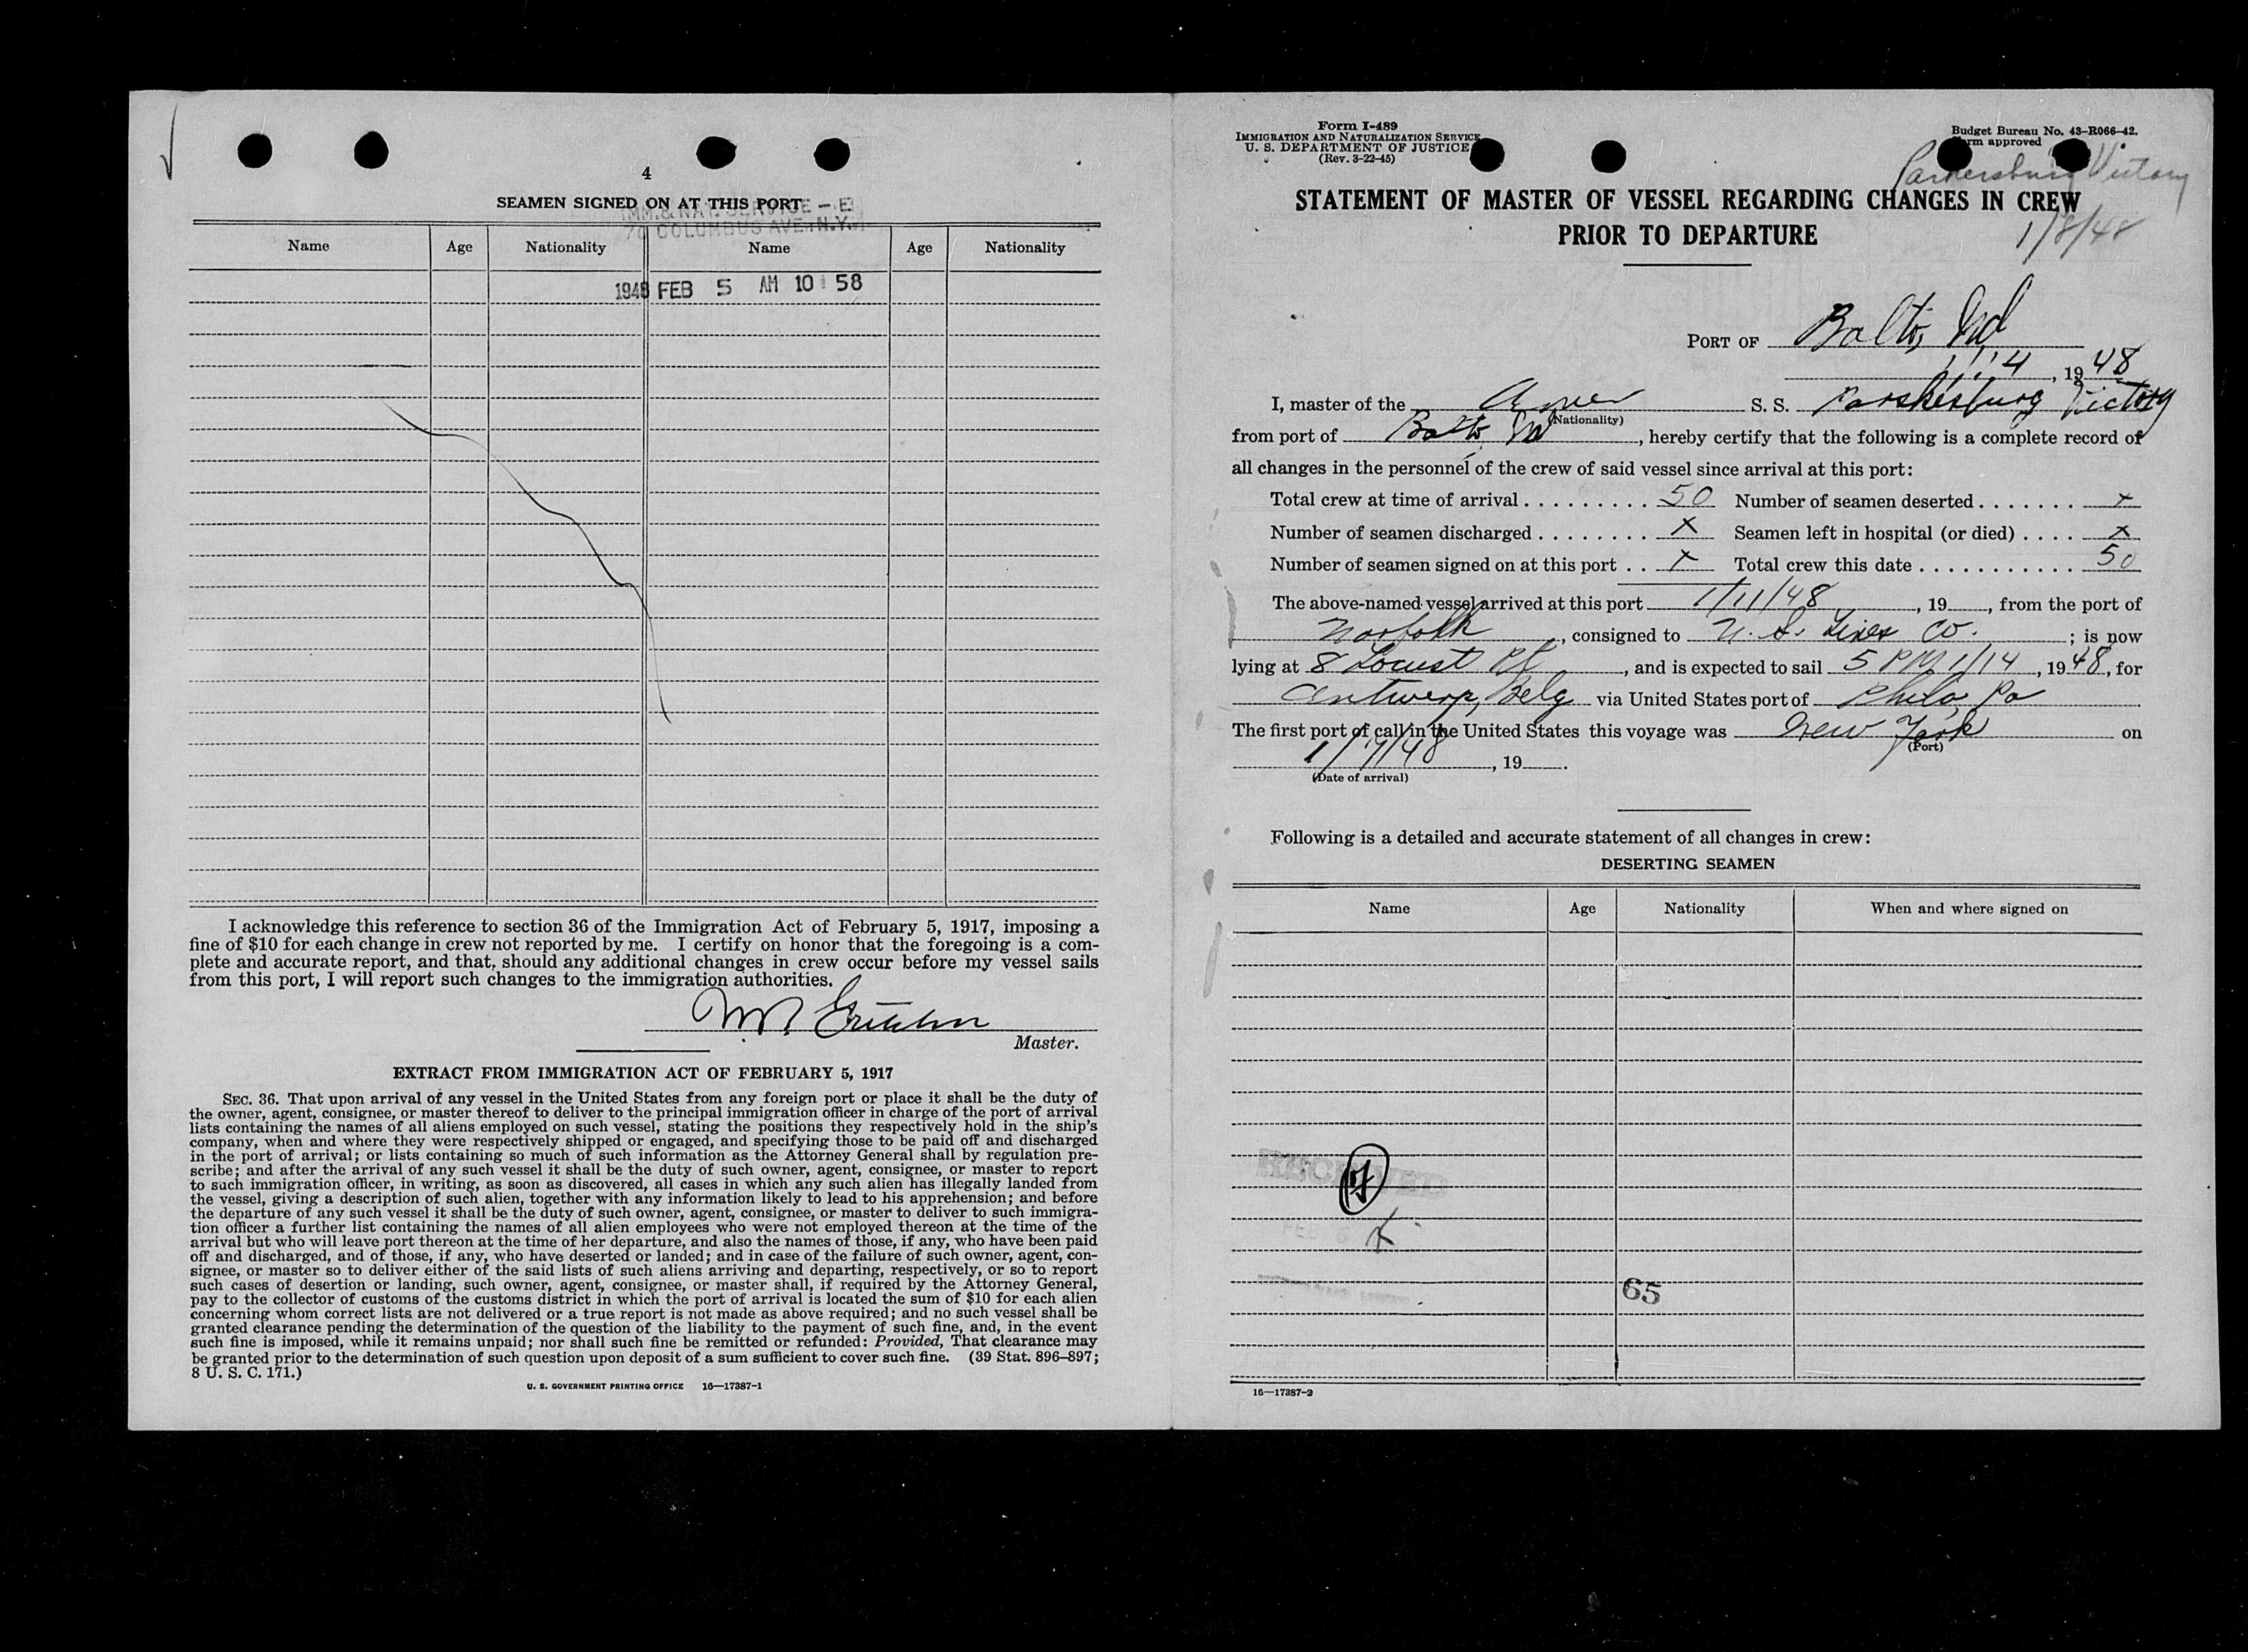 4
SEAMEN SIGNED ON AT THIS PORT
IMM. & NAT. SERVICE — E
70 COLUMBUS AVE. N.Y.
Name Age Nationality Name Age Nationality
1948 FEB 5 AM 10 58
I acknowledge this reference to section 36 of the Immigration Act of February 5, 1917, imposing a
fine of $10 for each change in crew not reported by me. I certify on honor that the foregoing is a com-
plete and accurate report, and that, should any additional changes in crew occur before my vessel sails
from this port, I will report such changes to the immigration authorities.
Master.
EXTRACT FROM IMMIGRATION ACT OF FEBRUARY 5, 1917
SEC. 36. That upon arrival of any vessel in the United States from any foreign port or place it shall be the duty of
the owner, agent, consignee, or master thereof to deliver to the principal immigration officer in charge of the port of arrival
lists containing the names of all aliens employed on such vessel, stating the positions they respectively hold in the ship's
company, when and where they were respectively shipped or engaged, and specifying those to be paid off and discharged
in the port of arrival; or lists containing so much of such information as the Attorney General shall by regulation pre-
scribe; and after the arrival of any such vessel it shall be the duty of such owner, agent, consignee, or master to report
to such immigration officer, in writing, as soon as discovered, all cases in which any such alien has illegally landed from
the vessel, giving a description of such alien, together with any information likely to lead to his apprehension; and before
the departure of any such vessel it shall be the duty of such owner, agent, consignee, or master to deliver to such immigra-
tion officer a further list containing the names of all alien employees who were not employed thereon at the time of the
arrival but who will leave port thereon at the time of her departure, and also the names of those, if any, who have been paid
off and discharged, and of those, if any, who have deserted or landed; and in case of the failure of such owner, agent, con-
signee, or master so to deliver either of the said lists of such aliens arriving and departing, respectively, or so to report
such cases of desertion or landing, such owner, agent, consignee, or master shall, if required by the Attorney General,
pay to the collector of customs of the customs district in which the port of arrival is located the sum of $10 for each alien
concerning whom correct lists are not delivered or a true report is not made as above required; and no such vessel shall be
granted clearance pending the determination of the question of the liability to the payment of such fine, and, in the event
such fine is imposed, while it remains unpaid; nor shall such fine be remitted or refunded: Provided, That clearance may
be granted prior to the determination of such question upon deposit of a sum sufficient to cover such fine. (39 Stat. 896–897;
8 U. S. C. 171.)
U. S. GOVERNMENT PRINTING OFFICE 16—17387-1
Form I-489
IMMIGRATION AND NATURALIZATION SERVICE
U. S. DEPARTMENT OF JUSTICE
(Rev. 3-22-45)
Budget Bureau No. 43-R066-42.
Form approved
Parkersburg Victory
STATEMENT OF MASTER OF VESSEL REGARDING CHANGES IN CREW
PRIOR TO DEPARTURE
1/8/48
PORT OF Balto, Md
1/14, 1948
I, master of the Amer S. S. Parkersburg Victory
(Nationality)
from port of Balto Md, hereby certify that the following is a complete record of
all changes in the personnel of the crew of said vessel since arrival at this port:
Total crew at time of arrival . . . . . . . . . . 50 Number of seamen deserted . . . . . . . x
Number of seamen discharged . . . . . . . . x Seamen left in hospital (or died) . . . . x
Number of seamen signed on at this port . . x Total crew this date . . . . . . . . . . . . 50
The above-named vessel arrived at this port 1/11/48, 19__, from the port of
Norfolk, consigned to U. S. Lines Co.; is now
lying at 8 Locust Pt, and is expected to sail 5 PM 1/14, 1948, for
Antwerp, Belg via United States port of Phila, Pa
The first port of call in the United States this voyage was New York on
(Port)
1/7/48, 19__.
(Date of arrival)
Following is a detailed and accurate statement of all changes in crew:
DESERTING SEAMEN
Name Age Nationality When and where signed on
RECEIVED
FEB
65
16—17387-2